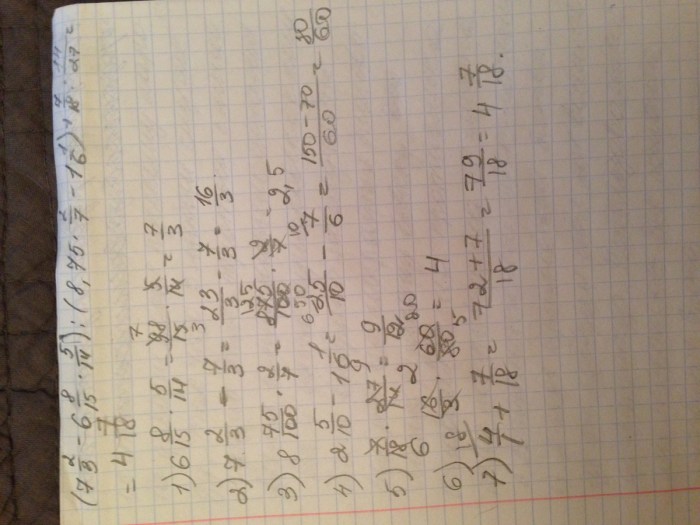 (7 2/3 - 6 8/15 · 5/14) : (8,75 · 2/7 - 1 1/6) + 7/18 : 14/27 =
= 4 7/18
1) 6 8/15 · 5/14 = 98/15 · 5/14 = 7/3
2) 7 2/3 - 7/3 = 23/3 - 7/3 = 16/3.
3) 8 75/100 · 2/7 = 875/100 · 2/7 = 2,5
4) 2 5/10 - 1 1/6 = 25/10 - 7/6 = 150-70/60 = 80/60
5) 7/18 · 27/14 = 9/12
6) 16/3 · 60/80 = 4
7) 4/1 + 7/18 = 72+7/18 = 79/18 = 4 7/18.